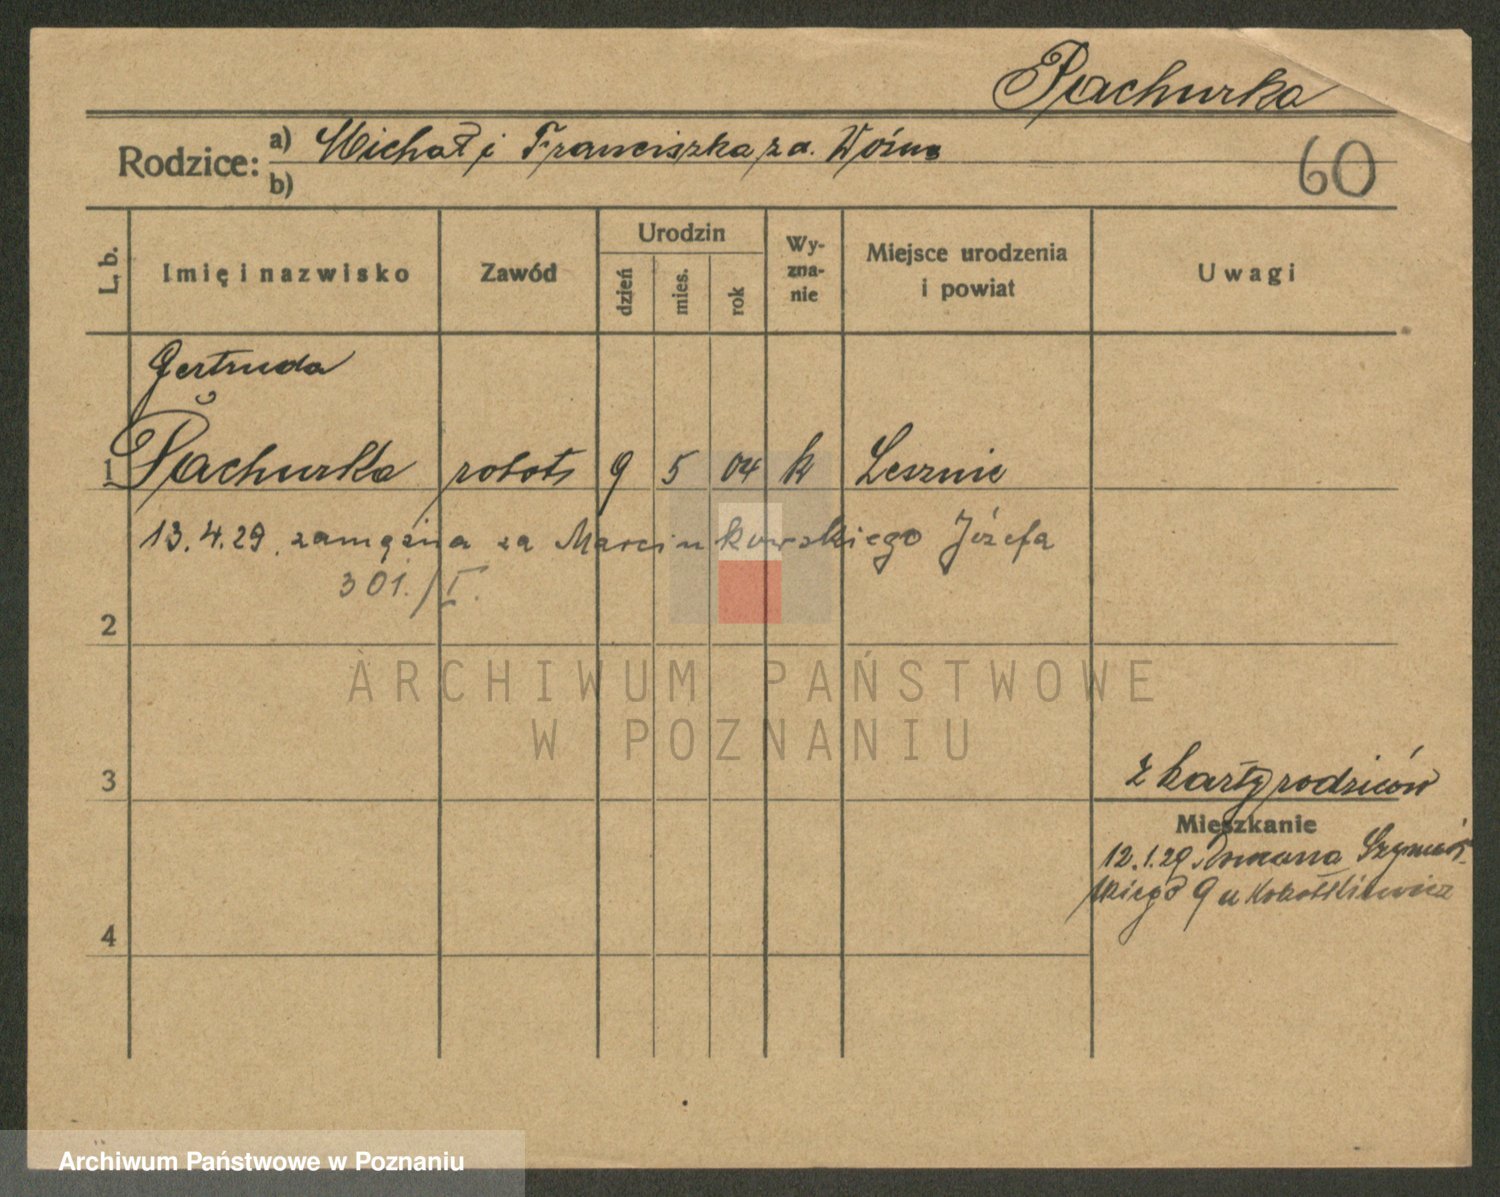 Pachurka
Rodzice: a) Michał i Franciszka z d.
b)
60
L. b.
Imię i nazwisko
Zawód
Urodzin
dzień
mies.
rok
Wy-
zna-
nie
Miejsce urodzenia
i powiat
Uwagi
Gertruda
1 Pachurka robotn 9 5 04 k Lesznie
13.4.29. zamężna za Marcinkowskiego Józefa
301./I.
2
ARCHIWUM PAŃSTWOWE
W POZNANIU
3
z karty rodziców
Mieszkanie
12.1.29. Romana Szymań-
skiego 9 u
4
Archiwum Państwowe w Poznaniu